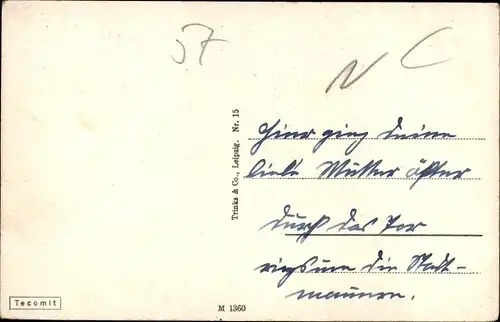 57
N C
Hier ging deine
liebe Mutter öfter
durch das Tor
rings um die Stadt-
mauern.
Trinks & Co., Leipzig. Nr. 15
Tecomit
M 1360